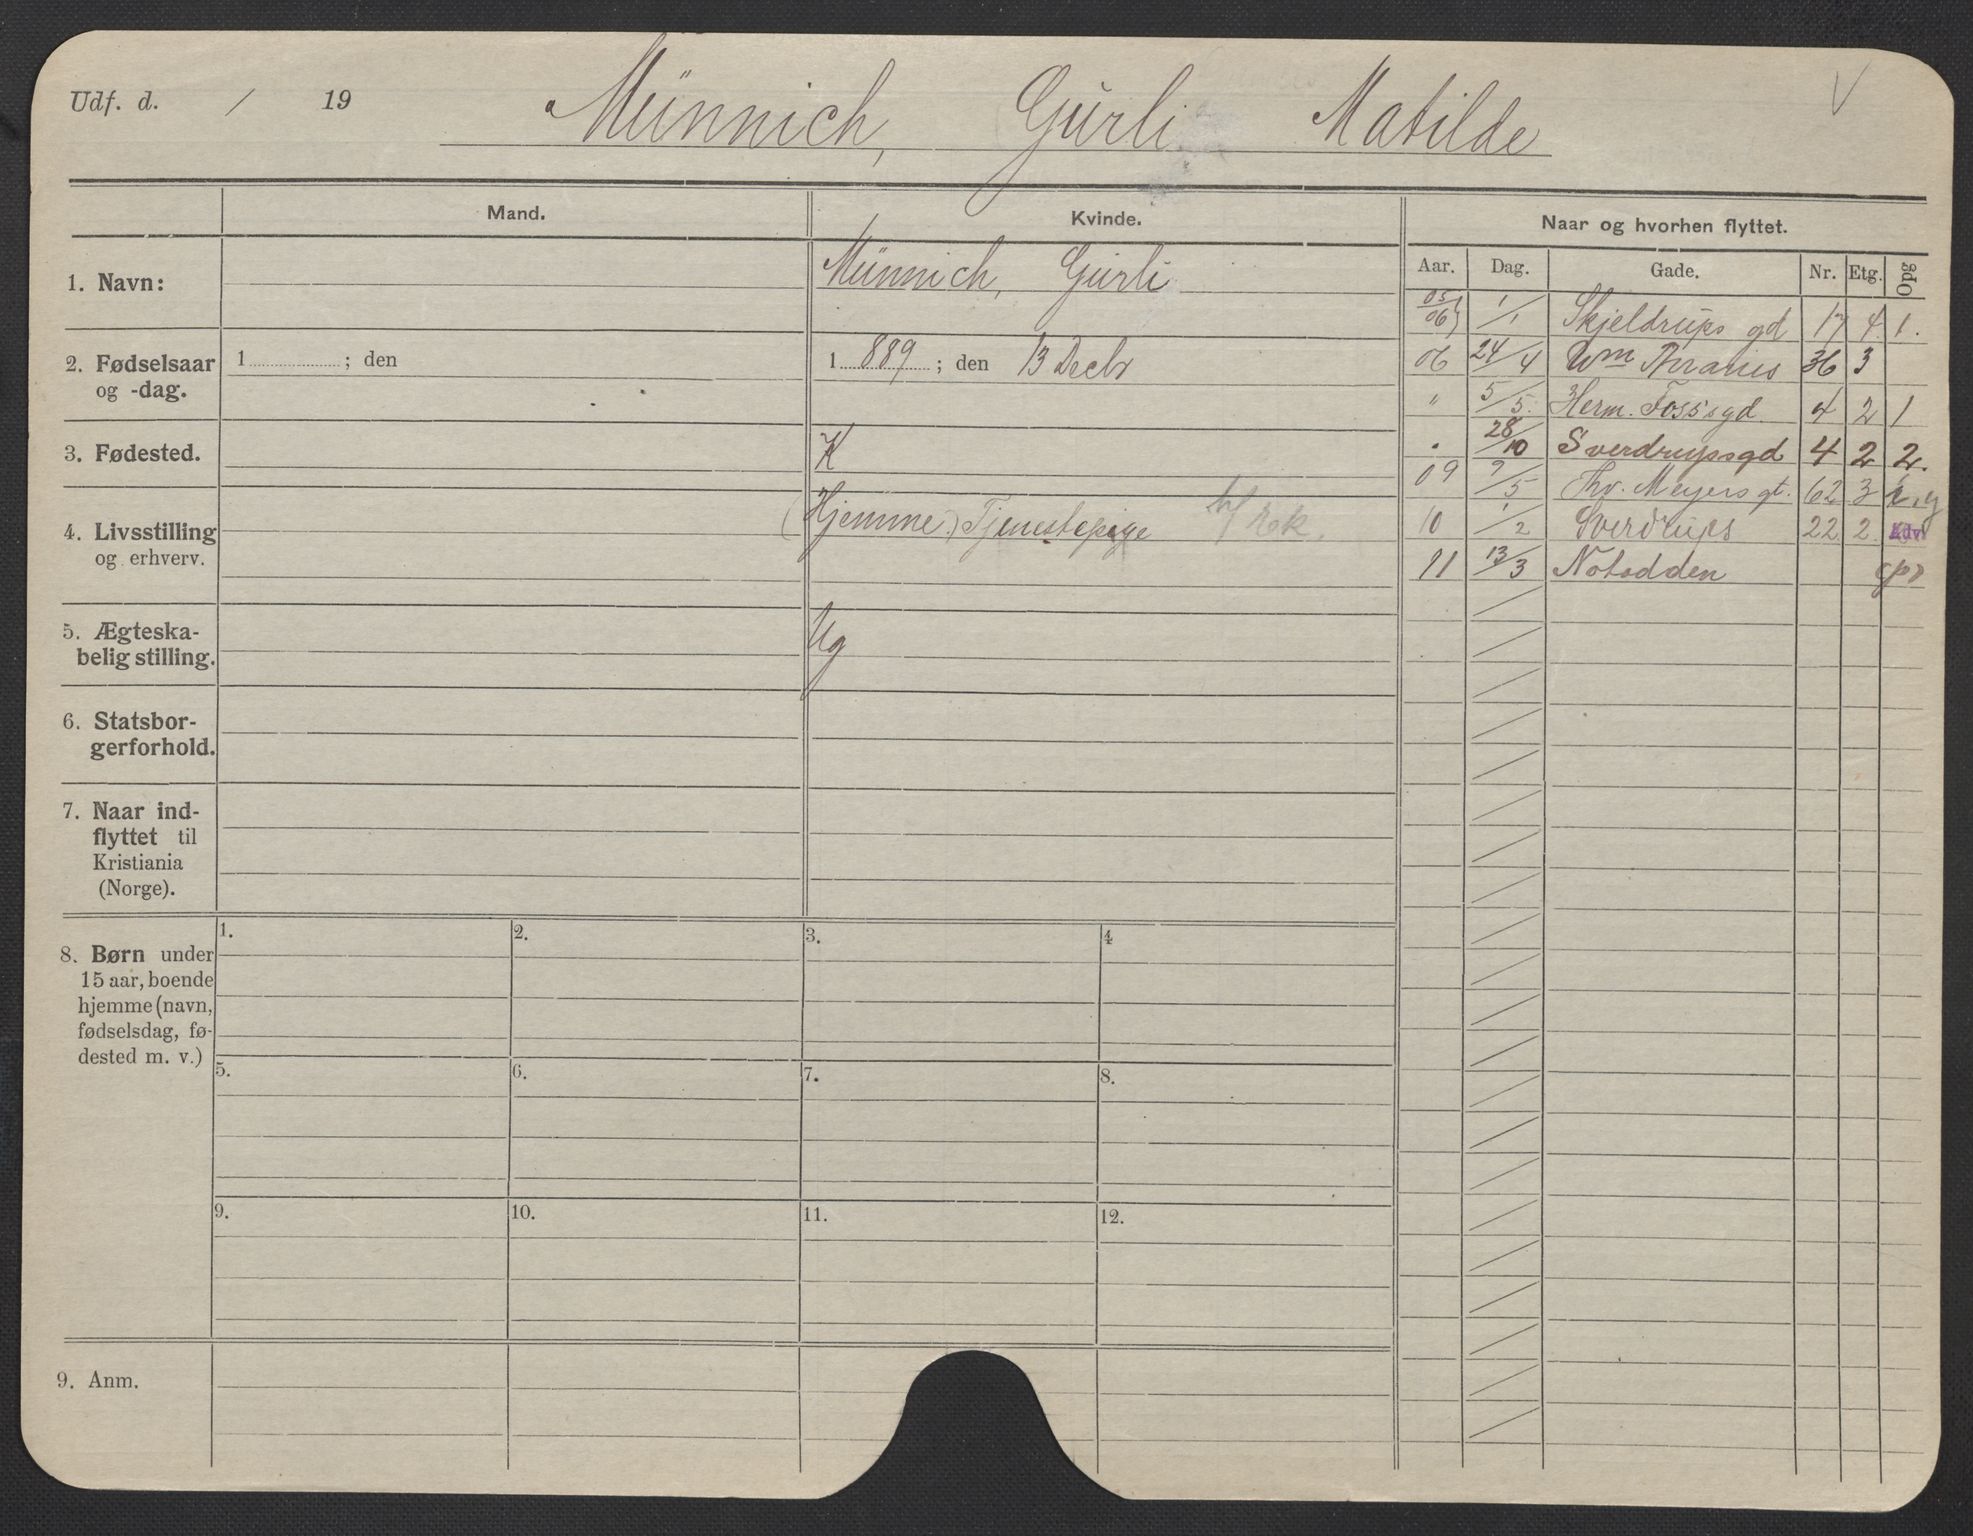 Udf. d. / 19
Münnich, Gurli Matilde
Mand.
Kvinde.
Naar og hvorhen flyttet.
Aar. Dag. Gade. Nr. Etg. Opg
1. Navn:
Münnich, Gurli
2. Fødselsaar
og -dag.
1 ; den
1 889 ; den 13 Decbr
3. Fødested.
K
4. Livsstilling
og erhverv.
(Hjemme) Tjenestepige
5. Ægteska-
belig stilling.
Ug
6. Statsbor-
gerforhold.
7. Naar ind-
flyttet til
Kristiania
(Norge).
8. Børn under
15 aar, boende
hjemme (navn,
fødselsdag, fø-
dested m. v.)
1. 2. 3. 4
5. 6. 7. 8.
9. 10. 11. 12.
9. Anm.
05/06 1/1 Skjeldrups gd 17 4 1.
06 24/4 Wm Thranes 36 3
" 5/5. Herm. Fossgd 4 2 1
" 28/10 Sverdrupsgd 4 2 2.
09 9/5 Thv. Meyers gt. 62 3
10 1/2 Sverdrups 22 2
11 13/3 Notodden